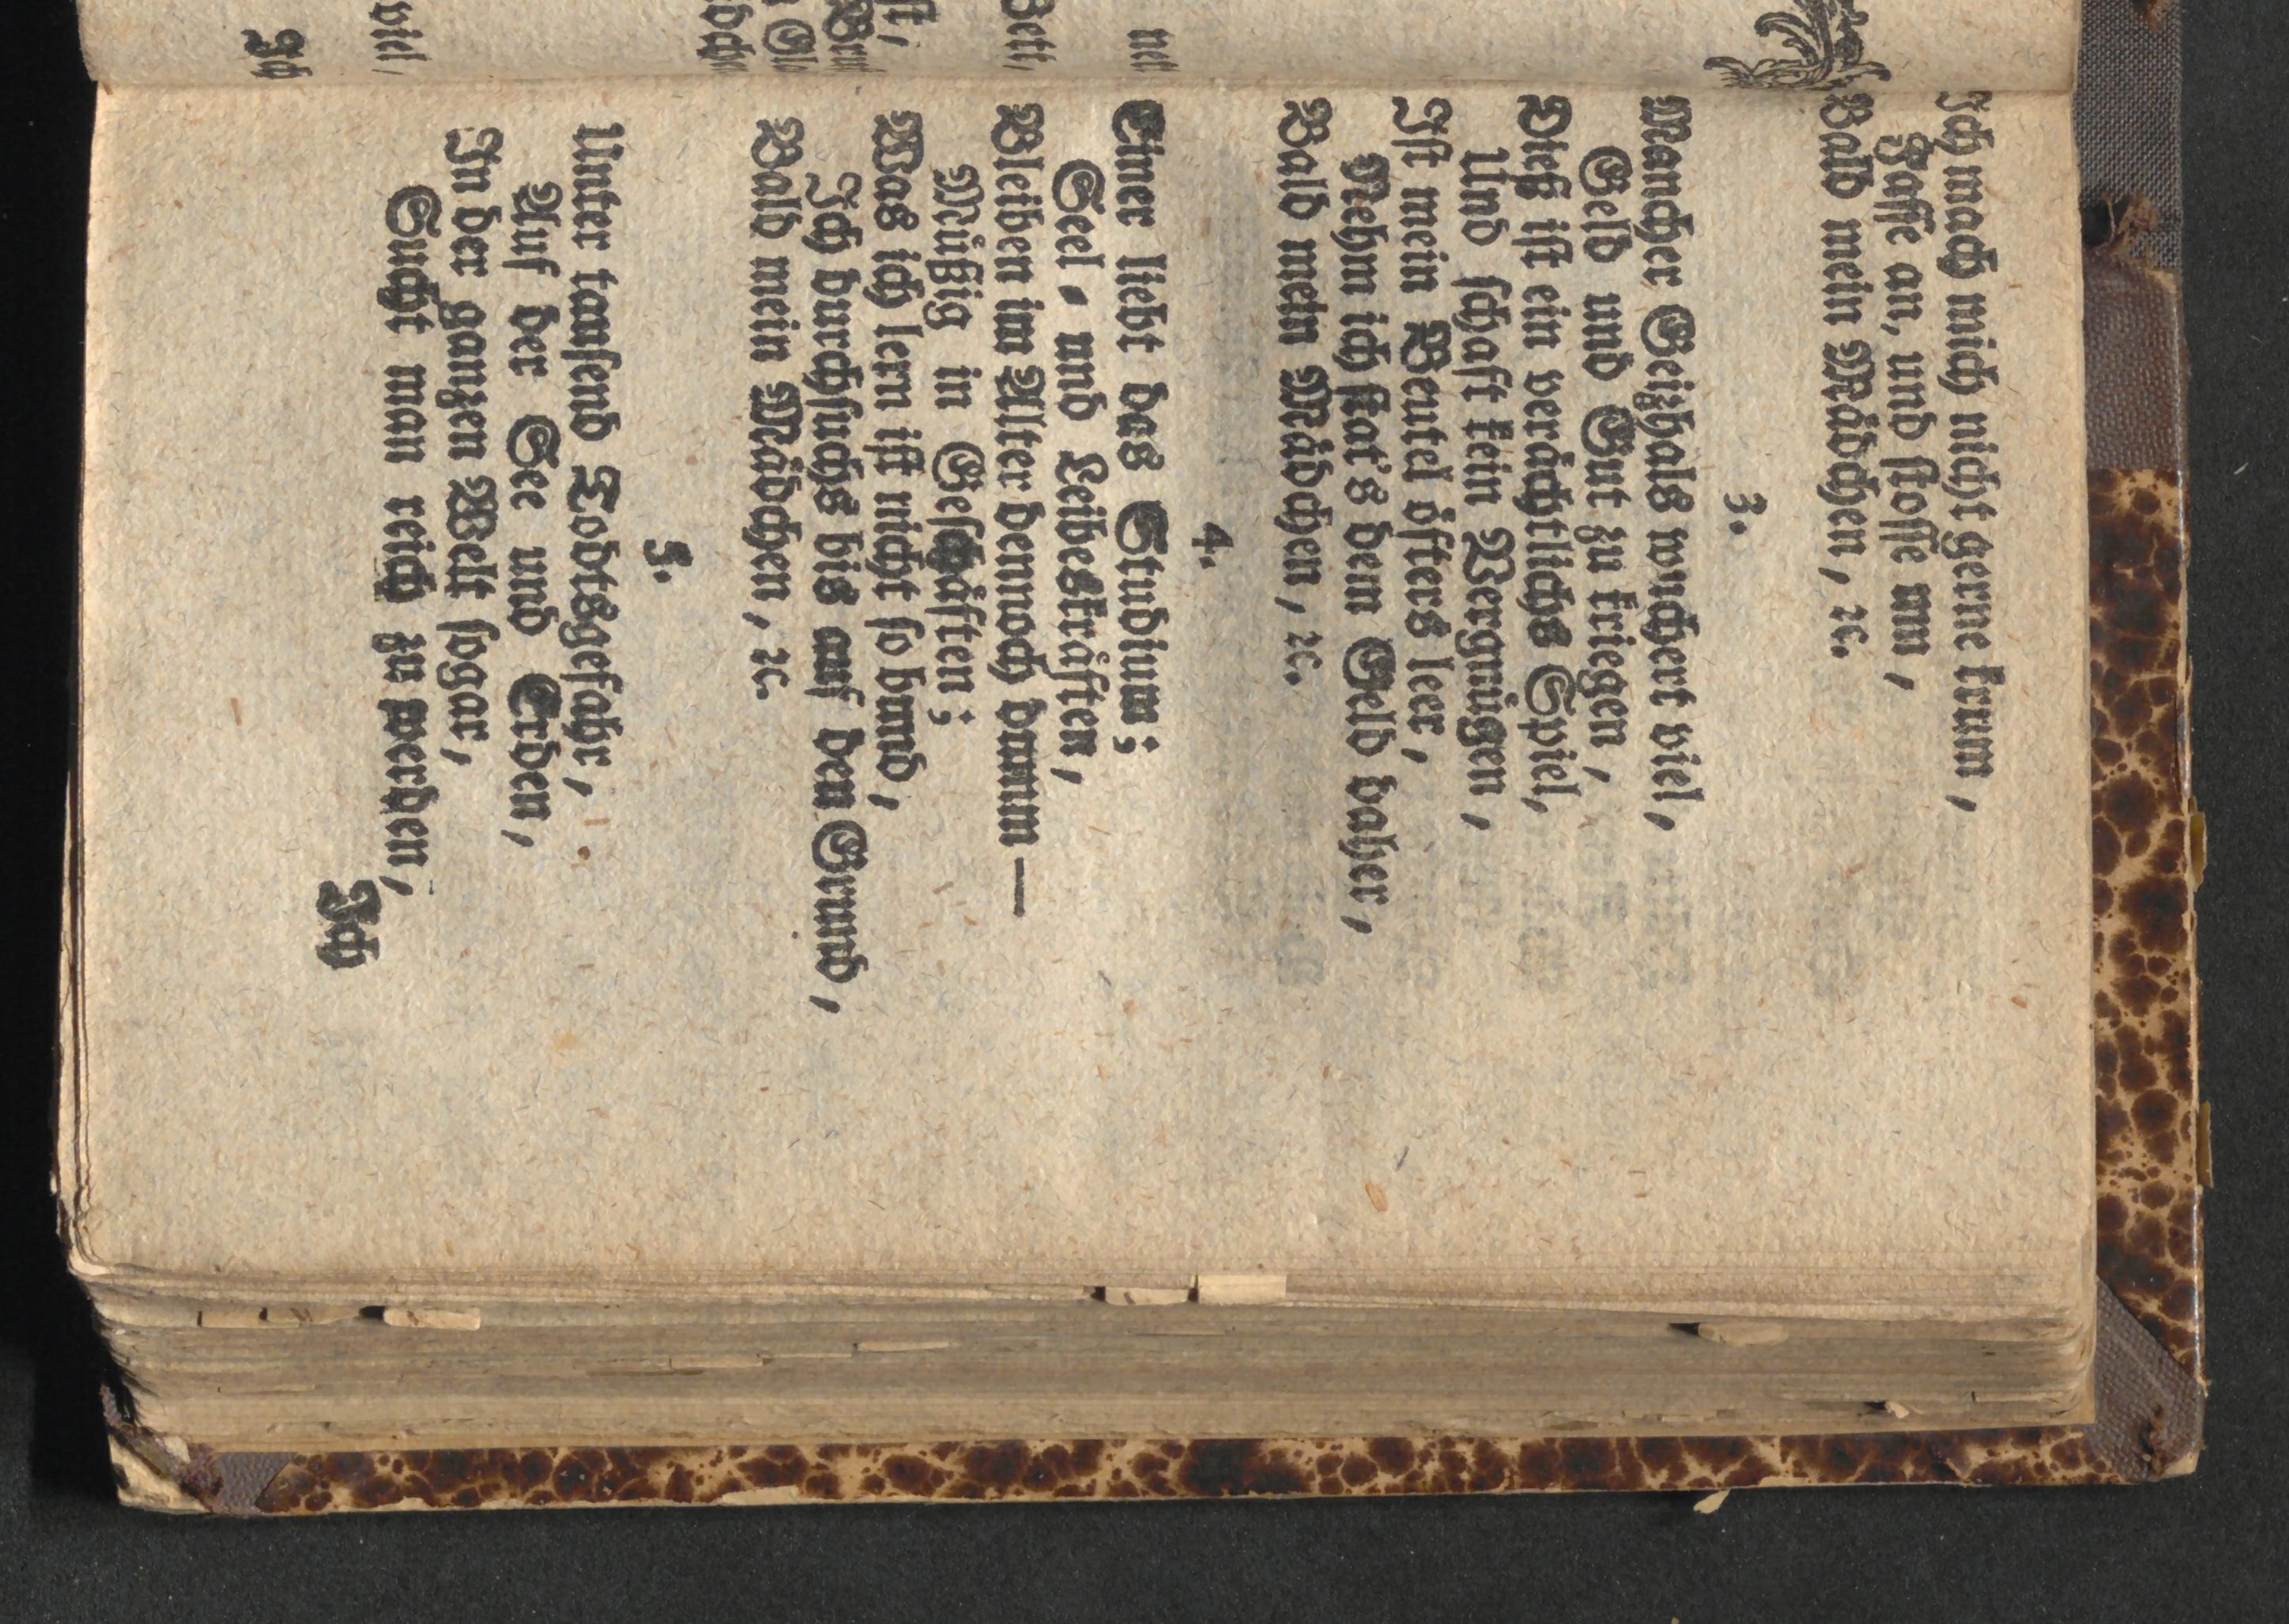 Ich mach mich nicht gerne krumm,
Fasse an, und stosse um,
Bald mein Mädchen, ꝛc.
3.
Mancher Geizhals wuchert viel,
Geld und Gut zu kriegen,
Dieß ist ein verächtlichs Spiel,
Und schaft kein Vergnügen,
Ist mein Beutel öfters leer,
Nehm ich stat's dem Geld daher,
Bald mein Mädchen, ꝛc.
4.
Einer liebt das Studium;
Seel- und Leibeskräften,
Bleiben im Alter dennoch dumm —
Müßig in Geschäften;
Was ich lern ist nicht so bund,
Ich durchsuchs bis auf den Grund,
Bald mein Mädchen, ꝛc.
5.
Unter tausend Todtsgefahr,
Auf der See und Erden,
In der ganzen Welt sogar,
Sucht man reich zu werden,
Ich